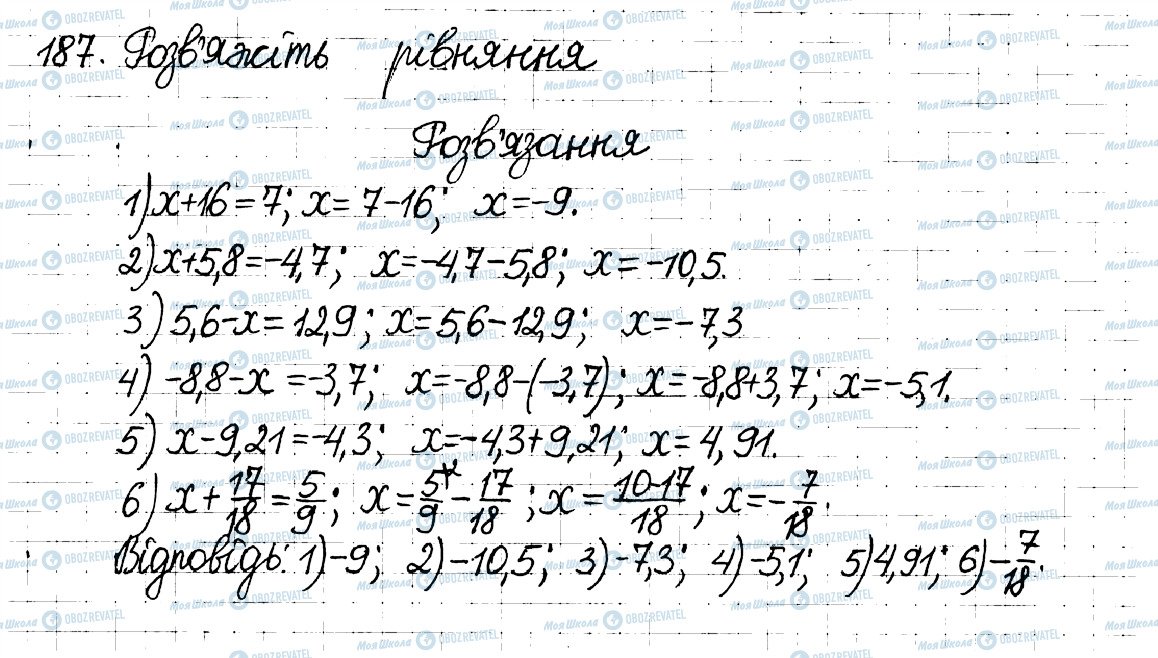 187. Розв'яжіть рівняння
Розв'язання
1) x+16=7; x=7-16; x=-9.
2) x+5,8=-4,7; x=-4,7-5,8; x=-10,5.
3) 5,6-x=12,9; x=5,6-12,9; x=-7,3
4) -8,8-x=-3,7; x=-8,8-(-3,7); x=-8,8+3,7; x=-5,1.
5) x-9,21=-4,3; x=-4,3+9,21; x=4,91.
6) x+17/18=5/9; x=5/9-17/18; x=10-17/18; x=-7/18.
Відповідь: 1)-9; 2)-10,5; 3)-7,3; 4)-5,1; 5)4,91; 6)-7/18.
Моя Школа OBOZREVATEL